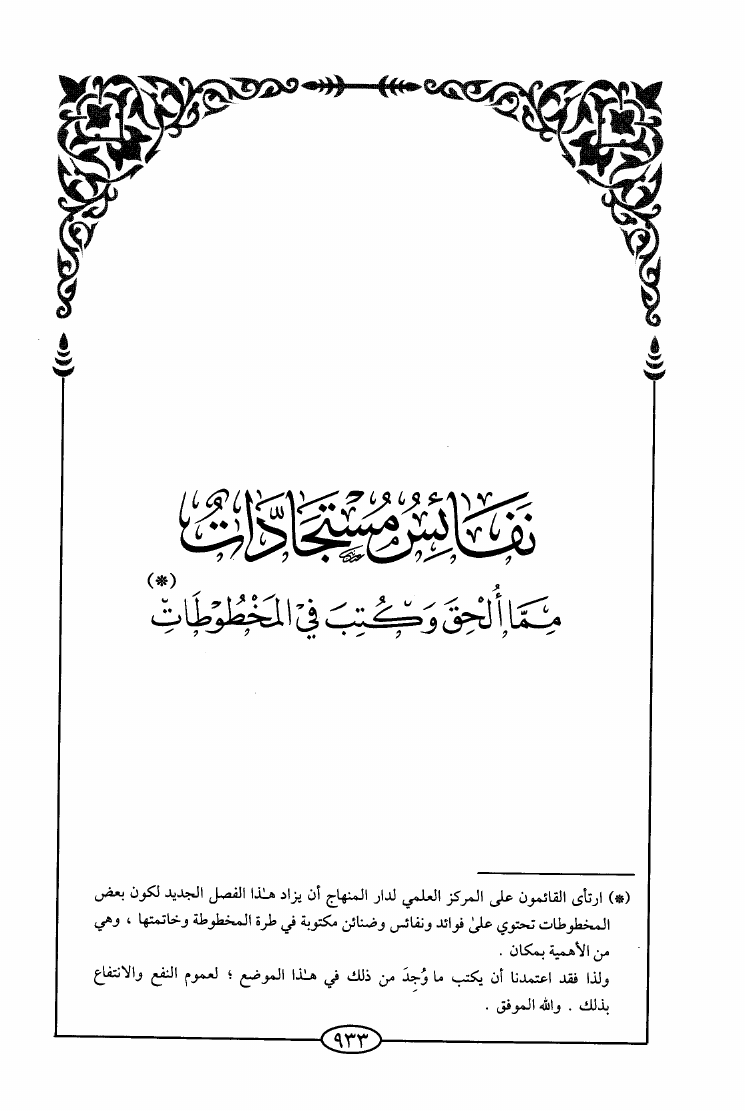 نَفَائِسُ مُسْتَجَادَاتٌ
مِمَّا أُلْحِقَ وَكُتِبَ فِي الْمَخْطُوطَاتِ (*)
(*) ارتأى القائمون على المركز العلمي لدار المنهاج أن يزاد هٰذا الفصل الجديد لكون بعض
المخطوطات تحتوي علىٰ فوائد ونفائس وضنائن مكتوبة في طرة المخطوطة وخاتمتها ، وهي
من الأهمية بمكان .
ولذا فقد اعتمدنا أن يكتب ما وُجِدَ من ذلك في هٰذا الموضع ؛ لعموم النفع والانتفاع
بذلك . والله الموفق .
٩٣٣